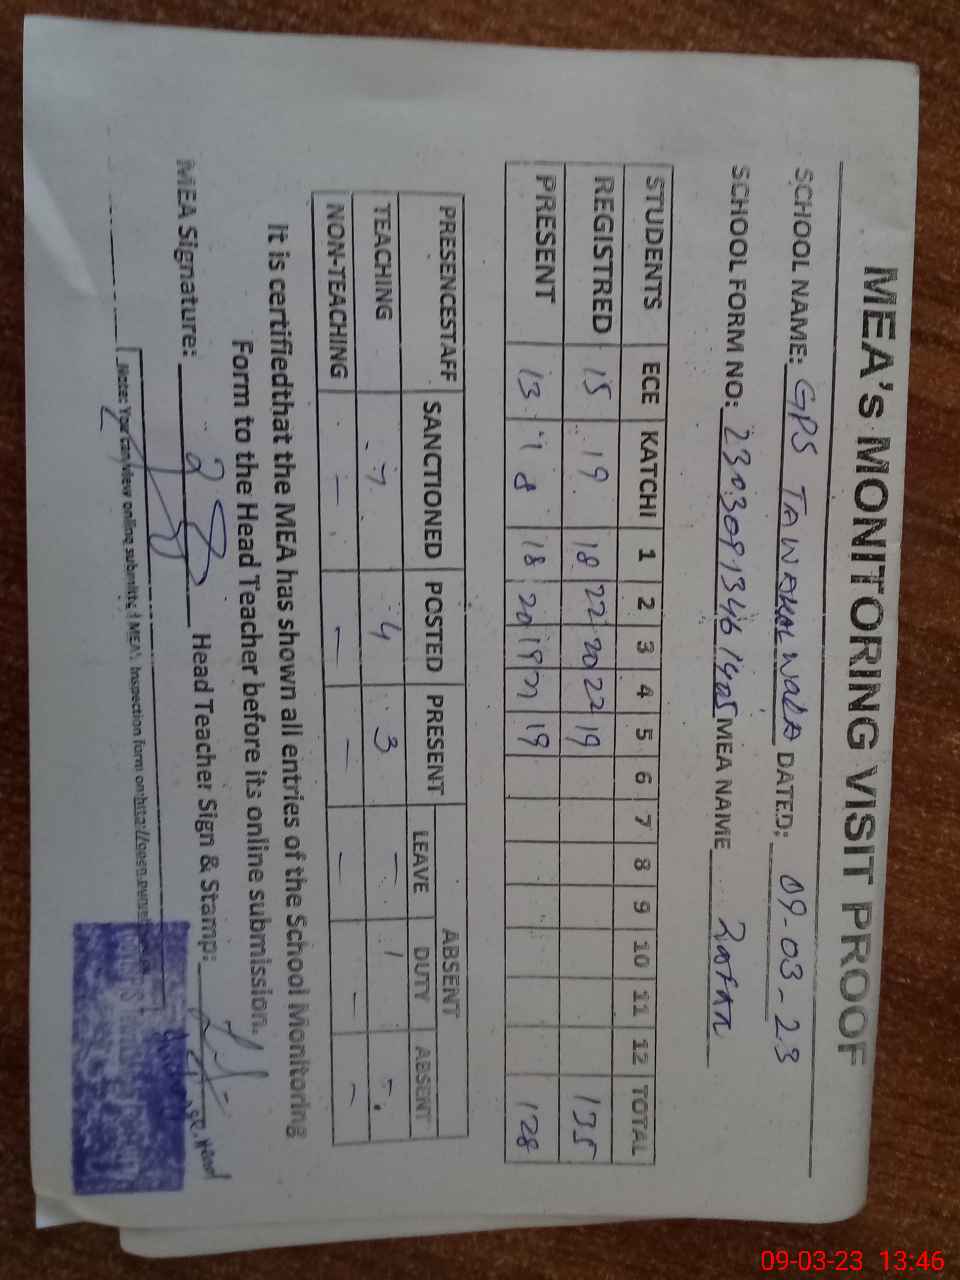 MEA's MONITORING VISIT PROOF
SCHOOL NAME: GPS TAWAKAL WALA DATED: 09-03-23
SCHOOL FORM NO: MEA NAME
STUDENTS ECE KATCHI 1 2 3 4 5 6 7 8 9 10 11 12 TOTAL
REGISTRED 15 19 18 22 20 22 19 135
PRESENT 13 18 18 20 19 21 19 128
PRESENCESTAFF SANCTIONED POSTED PRESENT ABSENT
LEAVE DUTY ABSENT
TEACHING 7 4 3 - 1 -
NON-TEACHING - - - - - -
It is certifiedthat the MEA has shown all entries of the School Monitoring
Form to the Head Teacher before its online submission.
MEA Signature: Head Teacher Sign & Stamp:
Note: You can view online submitted MEA's Inspection form on:
09-03-23 13:46